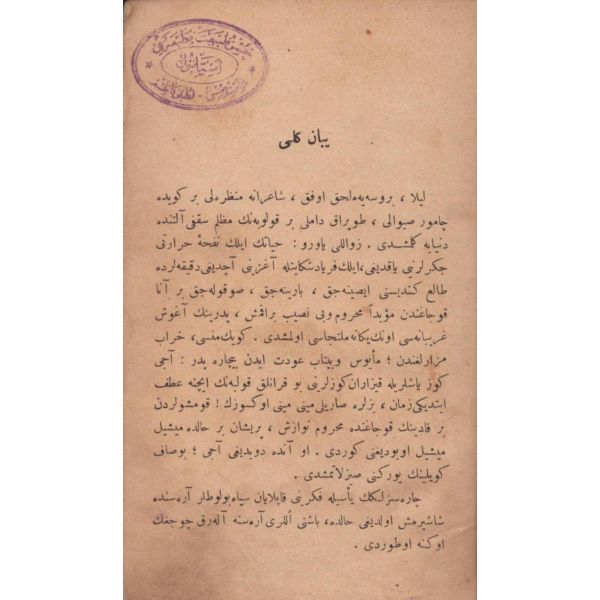 يبان كلى
ليلا ، بروسه‌يه ملحق اوفق ، شاعرانه منظره‌لى بر كويده
چامور صيوالى ، طوپراق داملى بر قولوبه‌نك مظلم سقفى آلتنده
دنيايه كلمشدى . زواللى ياورو : حياتك ايلك نفحهٔ حرارتى
جكرلرينى ياقديغى ، ايلك فرياد شكايتله آغزينى آچديغى دقيقه‌لرده
طالع كنديسنى ايصينه‌جق ، بارينه‌جق ، صوقوله‌جق بر آنا
قوجاغندن مؤبداً محروم وبى نصيب براقمش ، پدرينك آغوش
غريبانه‌سى اونك يكانه ملتجاسى اولمشدى . كويك منفسى ، خراب
مزارلغندن ؛ مأيوس وبيتاب عودت ايدن بيچاره پدر : آجى
كوز ياشلريله قيزاران كوزلرينى بو قراكلق قولبه‌نك ايچنه عطف
ايتديكى زمان ، بزلره صاريلى مينى مينى اوكسوزك ! قومشولردن
بر قادينك قوجاغنده محروم نوازش ، پريشان بر حالده ميشيل
ميشيل اويوديغنى كوردى . او آنده دويديغى آجى ؛ بوصاف
كويلينك يوركنى صيزلاتمشدى .
چاره‌سزلكك يأسيله فكرينى قاپلايان سياه بولوطلر آره‌سنده
شاشيرمش اولديغى حالده ، باشنى اللرى آره‌سنه آله‌رق چوجغك
اوكنه اوطوردى .